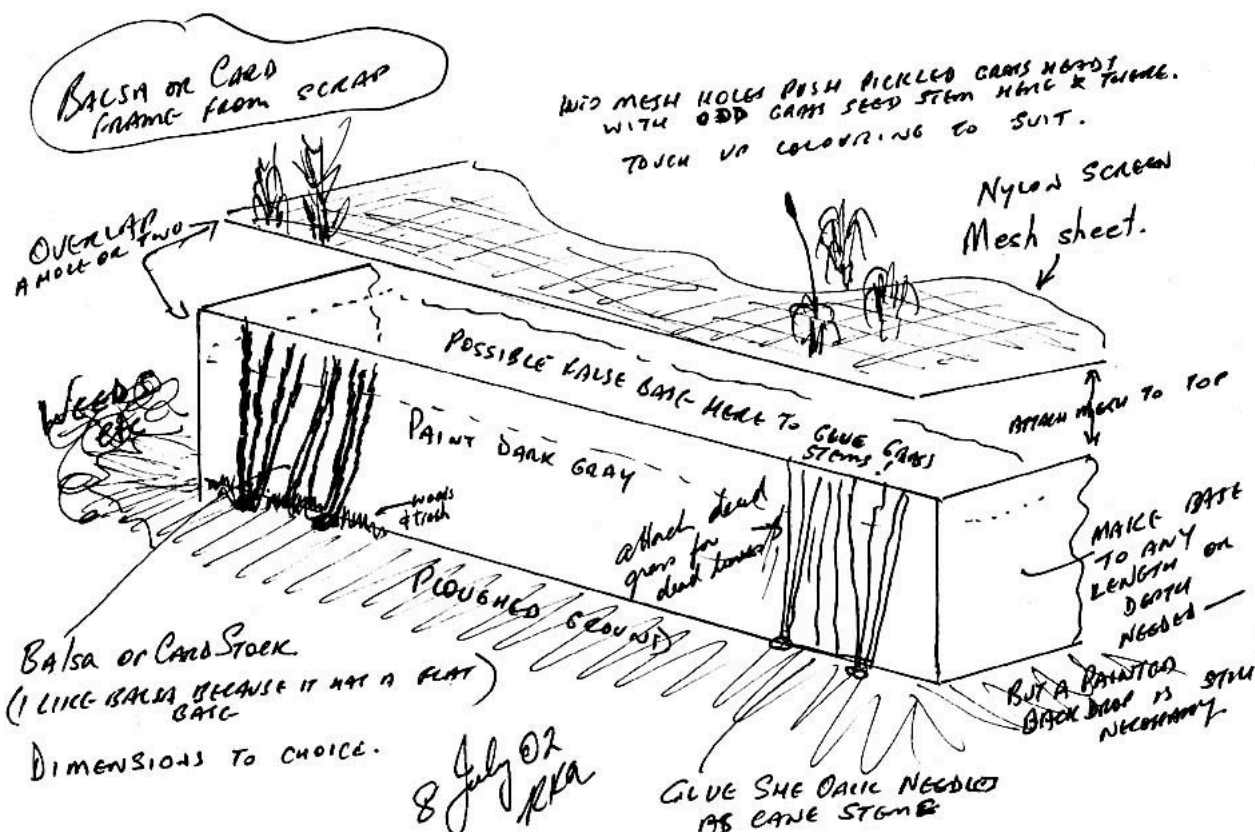 BALSA OR CARD
FRAME FROM SCRAP
INTO MESH HOLES PUSH PICKLED GRASS HEADS
WITH ODD GRASS SEED STEM HERE & THERE.
TOUCH UP COLOURING TO SUIT.
NYLON SCREEN
Mesh sheet.
OVERLAP
A HOLE OR TWO
POSSIBLE FALSE BASE HERE TO GLUE GRASS
STEMS!
ATTACH MESH TO TOP
WEEDS
etc
PAINT DARK GRAY
weeds
& trash
attach dead
grass for
dead leaves
MAKE BASE
TO ANY
LENGTH OR
DEPTH
NEEDED —
BUT A PAINTED
BACKDROP IS STILL
NECESSARY
PLOUGHED GROUND
Balsa or CARD STOCK
(I LIKE BALSA BECAUSE IT HAS A FLAT
BASE)
DIMENSIONS TO CHOICE.
8 July 02
RKA
GLUE SHE OAK NEEDLES
AS CANE STEMS